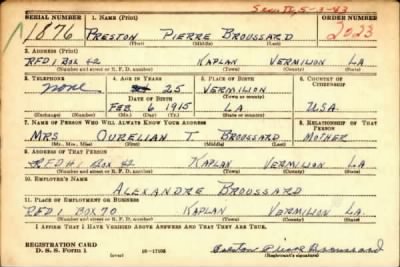 SERIAL NUMBER 1. NAME (Print) ORDER NUMBER
1876 PRESTON PIERRE BROUSSARD 2023
(First) (Middle) (Last)
2. ADDRESS (Print)
RFD 1 BOX 42 KAPLAN VERMILION LA
(Number and street or R. F. D. number) (Town) (County) (State)
3. TELEPHONE 4. AGE IN YEARS 5. PLACE OF BIRTH 6. COUNTRY OF CITIZENSHIP
none 25 VERMILION
DATE OF BIRTH (Town or county)
FEB 6 1915 LA U.S.A.
(Exchange) (Number) (Mo.) (Day) (Yr.) (State or country)
7. NAME OF PERSON WHO WILL ALWAYS KNOW YOUR ADDRESS 8. RELATIONSHIP OF THAT PERSON
MRS OURELIAN T. BROUSSARD MOTHER
(Mr., Mrs., Miss) (First) (Middle) (Last)
9. ADDRESS OF THAT PERSON
RFD #1 BOX 42 KAPLAN VERMILION LA
(Number and street or R. F. D. number) (Town) (County) (State)
10. EMPLOYER'S NAME
ALEXANDRE BROUSSARD
11. PLACE OF EMPLOYMENT OR BUSINESS
RFD 1 BOX 70 KAPLAN VERMILION LA.
(Number and street or R. F. D. number) (Town) (County) (State)
I AFFIRM THAT I HAVE VERIFIED ABOVE ANSWERS AND THAT THEY ARE TRUE.
REGISTRATION CARD
D. S. S. Form 1 (over) 16—17105 Preston Pierre Broussard
(Registrant's signature)